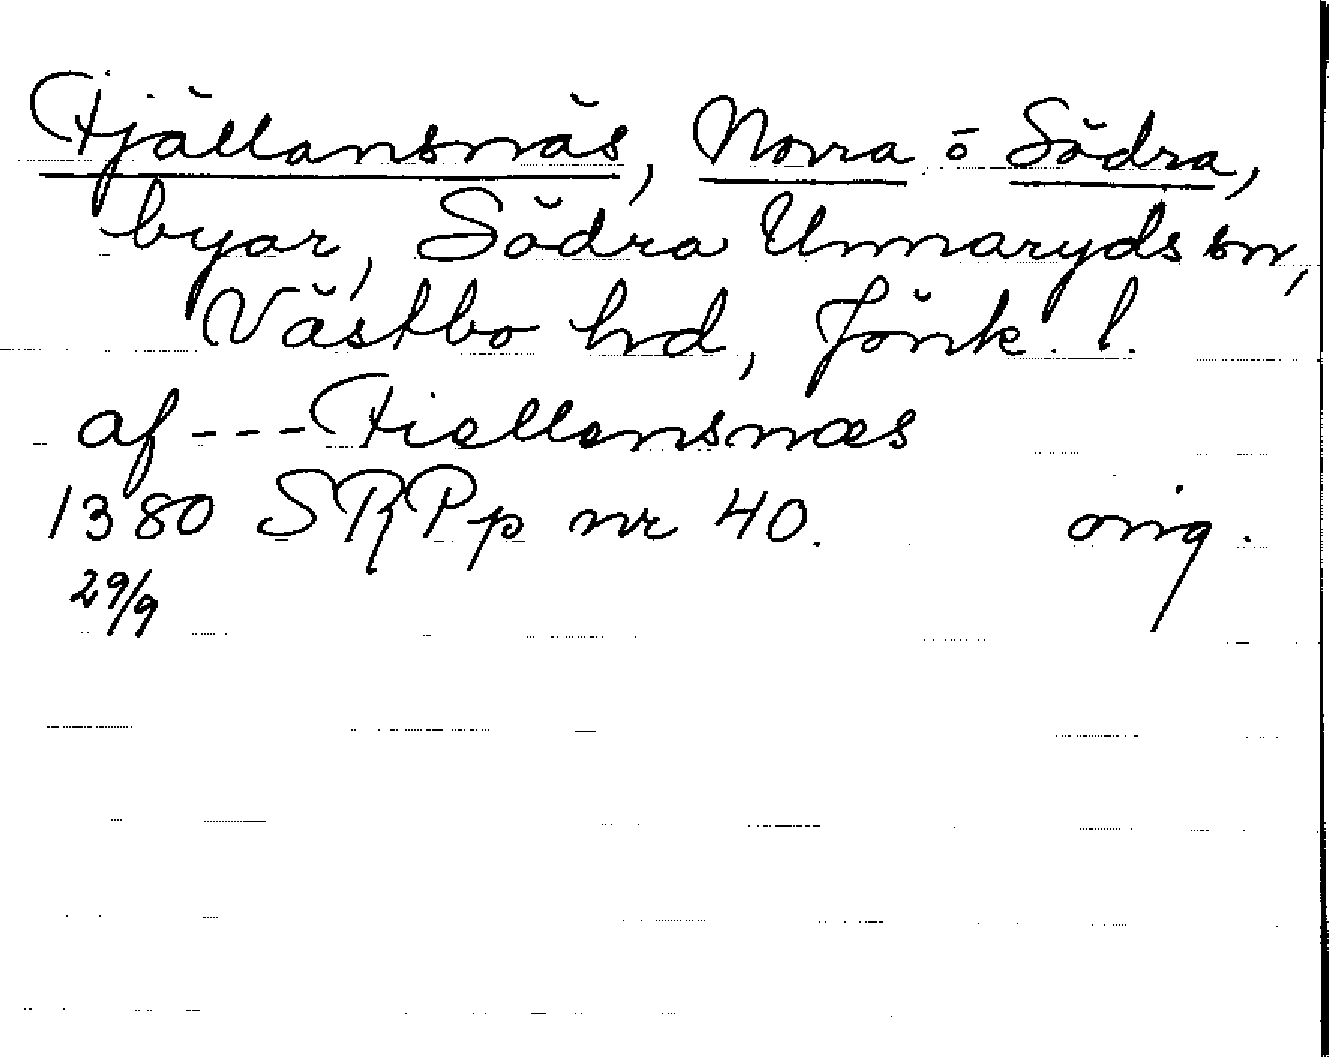 Fjällansnäs, Norra o Södra,
byar, Södra Unnaryds sn,
Västbo hd, Jönk. l.
af --- Fiellensnæs
1380 SRPp nr 40. orig.
29/9